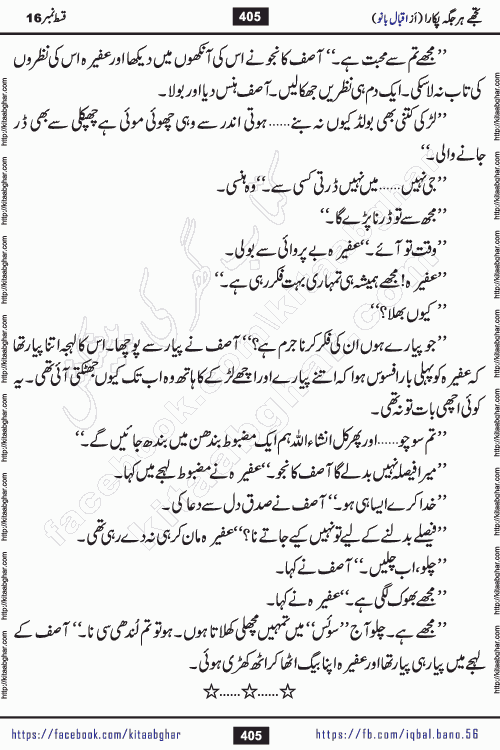 تجھے ہر جگہ پکارا (از اقبال بانو)
405
قسط نمبر 16
’’مجھے تم سے محبت ہے۔‘‘ آصف کانجو نے اس کی آنکھوں میں دیکھا اور عفیرہ اس کی نظروں
کی تاب نہ لا سکی۔ ایک دم ہی نظریں جھکا لیں۔ آصف ہنس دیا اور بولا۔
’’لڑکی کتنی بھی بولڈ کیوں نہ بنے...... ہوتی اندر سے وہی چھوئی موئی ہے چھپکلی سے بھی ڈر
جانے والی۔‘‘
’’جی نہیں...... میں نہیں ڈرتی کسی سے۔‘‘ وہ ہنسی۔
’’مجھ سے تو ڈرنا پڑے گا۔‘‘
’’وقت تو آئے۔‘‘ عفیرہ بے پروائی سے بولی۔
’’عفیرہ! مجھے ہمیشہ ہی تمہاری بہت فکر رہی ہے۔‘‘
’’کیوں بھلا؟‘‘
’’جو پیارے ہوں ان کی فکر کرنا جرم ہے؟‘‘ آصف نے پیار سے پوچھا۔ اس کا لہجہ اتنا پیارا تھا
کہ عفیرہ کو پہلی بار افسوس ہوا کہ اتنے پیارے اور اچھے لڑکے کا ہاتھ وہ اب تک کیوں جھٹکتی آئی تھی۔ یہ
کوئی اچھی بات تو نہ تھی۔
’’تم سوچو...... اور پھر کل انشاء اللہ ہم ایک مضبوط بندھن میں بندھ جائیں گے۔‘‘
’’میرا فیصلہ نہیں بدلے گا آصف کانجو۔‘‘ عفیرہ نے مضبوط لہجے میں کہا۔
’’خدا کرے ایسا ہی ہو۔‘‘ آصف نے صدق دل سے دعا کی۔
’’فیصلے بدلنے کے لیے تو نہیں کیے جاتے نا؟‘‘ عفیرہ مان کر ہی نہ دے رہی تھی۔
’’چلو، اب چلیں۔‘‘ آصف نے کہا۔
’’مجھے بھوک لگی ہے۔‘‘ عفیرہ نے کہا۔
’’مجھے ہے۔ چلو آج ’’سوئس‘‘ میں تمہیں مچھلی کھلاتا ہوں۔ ہو تو تم لُدھی سی نا۔‘‘ آصف کے
لہجے میں پیار ہی پیار تھا اور عفیرہ اپنا بیگ اٹھا کر اٹھ کھڑی ہوئی۔
☆......☆......☆
کتاب گھر کی پیشکش
facebook.com/kitaabghar
kitaabghar.com
http://kitaabghar.com
https://facebook.com/kitaabghar
405
https://fb.com/iqbal.bano.56